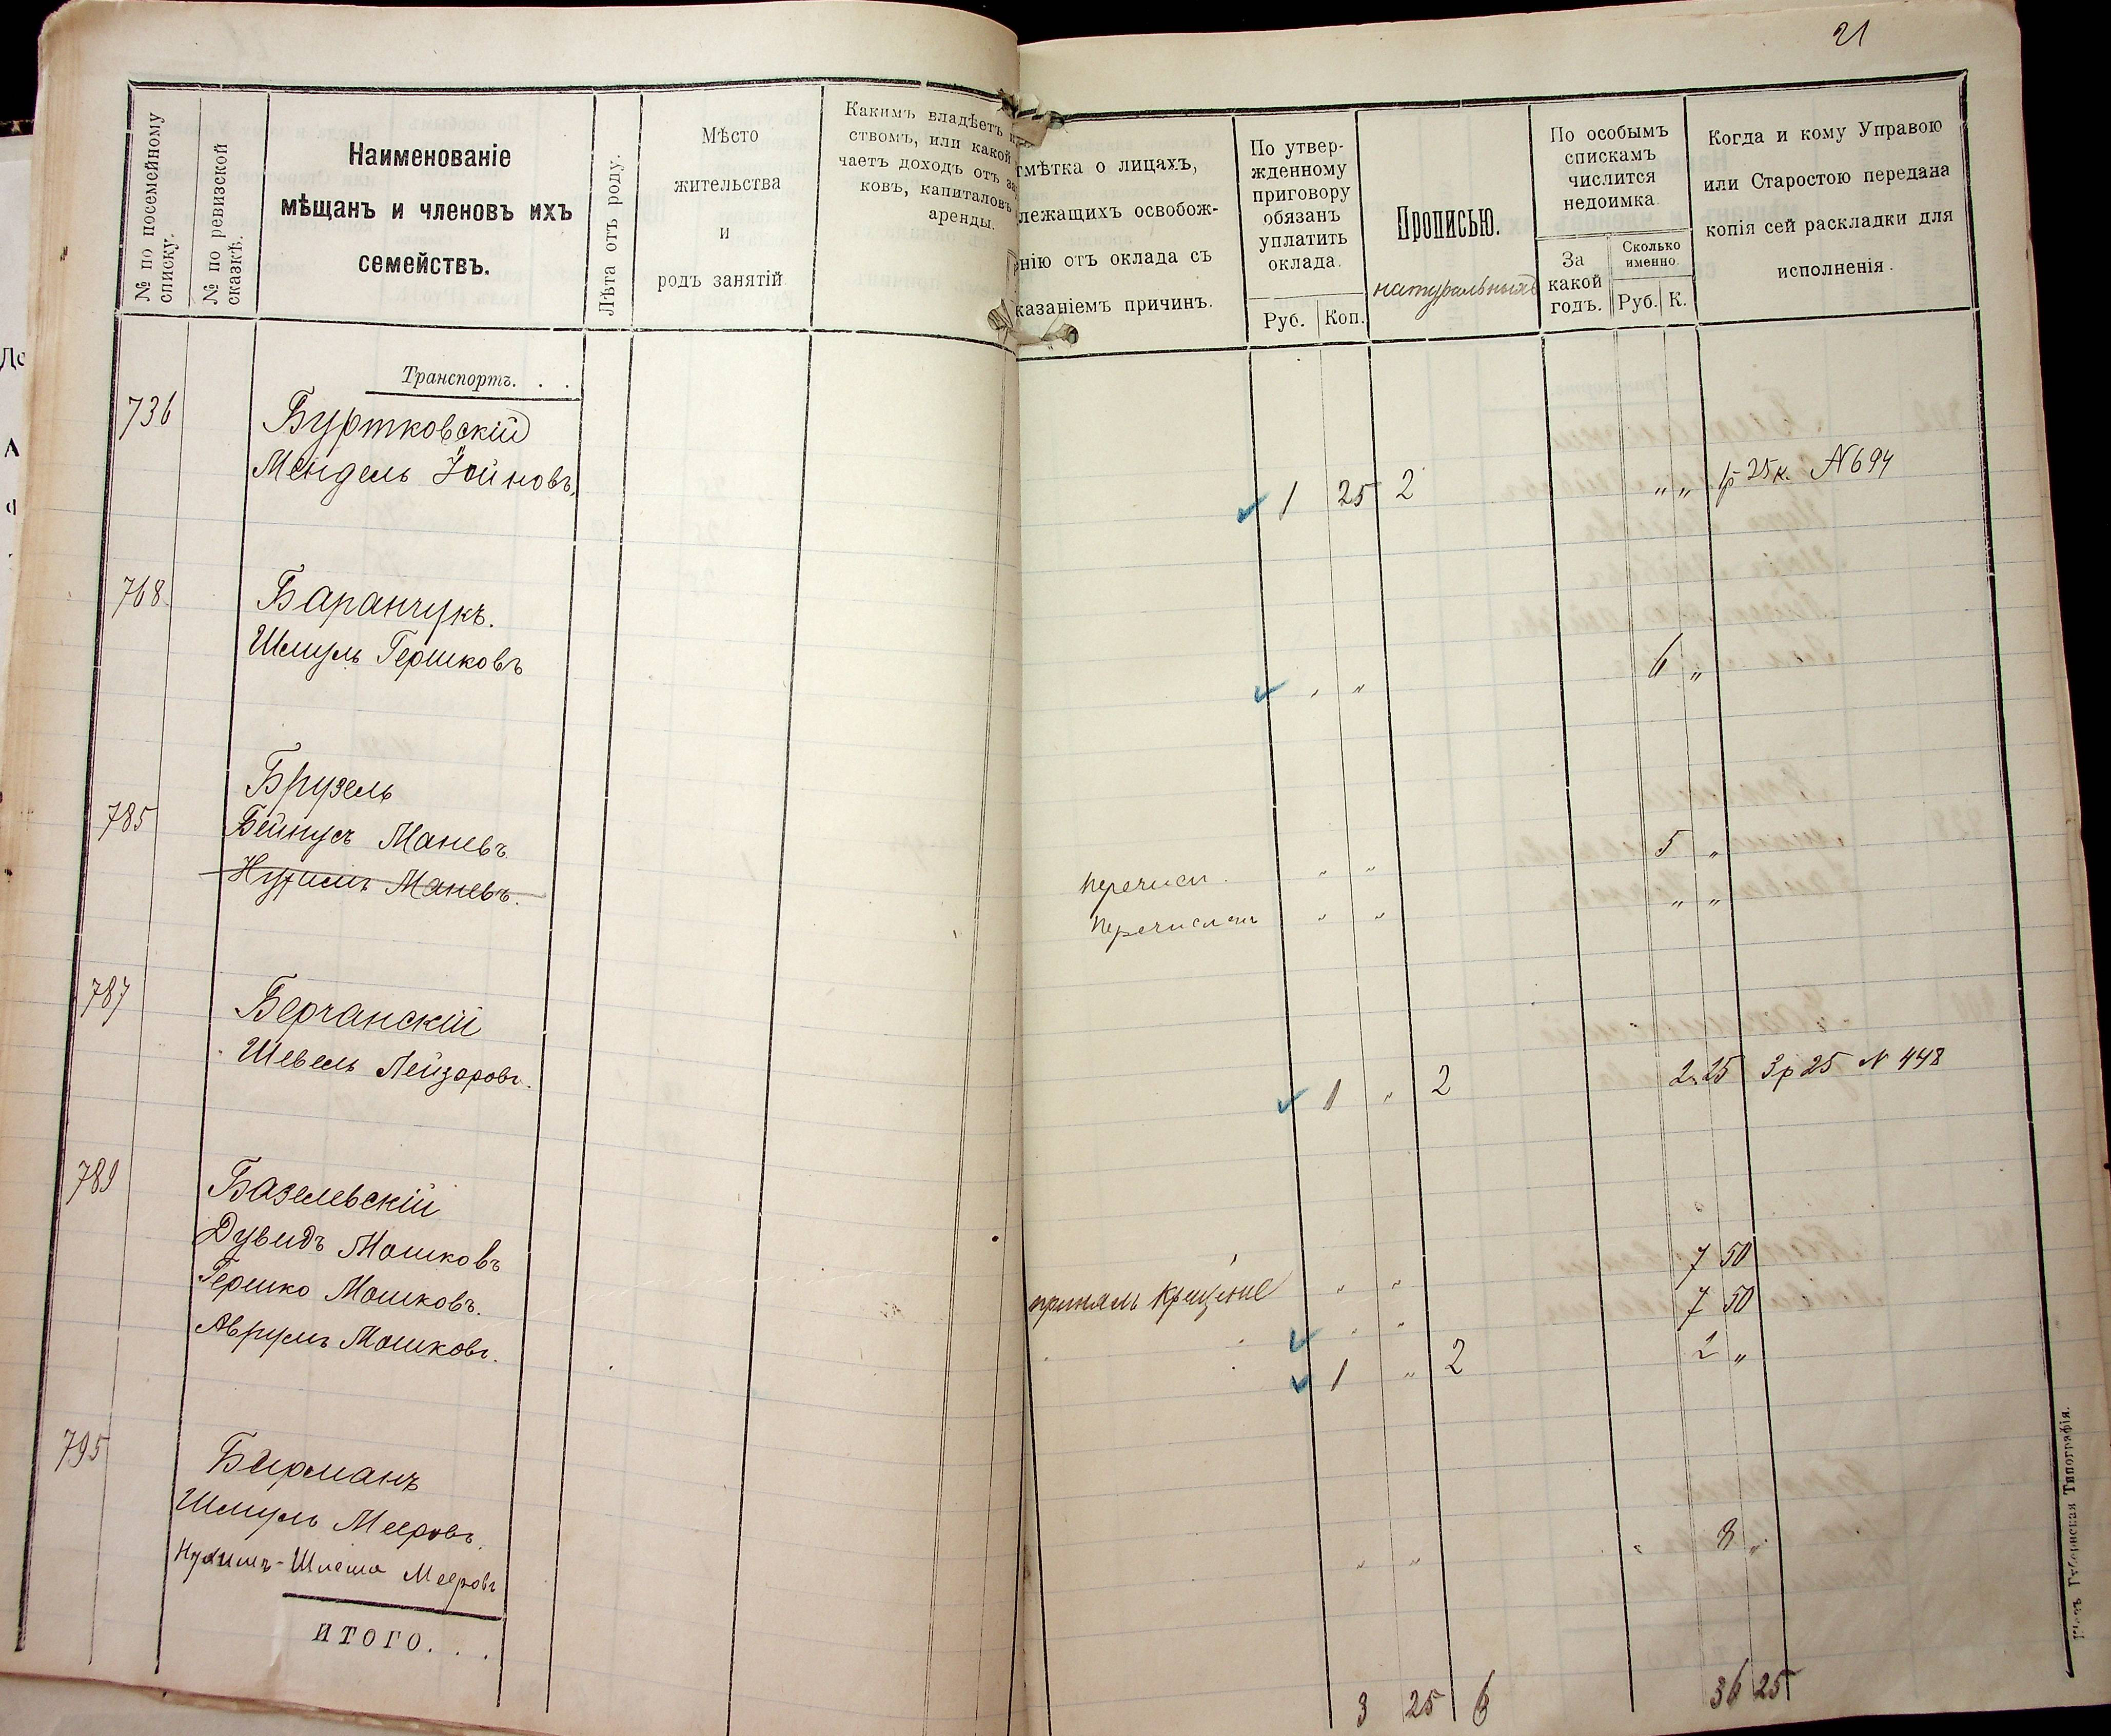 21
№ по посемейному списку.
№ по ревизской сказкѣ.
Наименованіе
мѣщанъ и членовъ ихъ
семействъ.
Лѣта отъ роду.
Мѣсто
жительства
и
родъ занятій
Какимъ владѣетъ
ствомъ, или какой
чаетъ доходъ отъ
ковъ, капиталовъ
аренды.
тмѣтка о лицахъ,
лежащихъ освобож-
нію отъ оклада съ
казаніемъ причинъ.
По утвер-
жденному
приговору
обязанъ
уплатить
оклада.
Руб. Коп.
Прописью.
натуральныхъ
По особымъ
спискамъ
числится
недоимка
За
какой
годъ.
Сколько
именно.
Руб. К.
Когда и кому Управою
или Старостою передана
копія сей раскладки для
исполненія.
Транспортъ. . .
736 Буртковскій
Мендель Іойновъ. 1 25 2 " " 1р 25к. N 694
768 Баранчукъ.
Шмуль Гершковъ " " 6 "
Брузель
785 Бейнусъ Маневъ. перечисл. " " 5 "
Нухимъ Маневъ. перечисленъ " " " "
787 Берчанскій
Шевель Лейзоровъ. 1 " 2 2 25 3р 25 N 448
789 Базелевскій
Дувидъ Мошковъ принялъ крещеніе " " 7 50
Гершко Мошковъ. " " 7 50
Аврумъ Мошковъ. 1 " 2 2 "
795 Бирманъ
Шмуль Мееровъ.
Нухимъ-Шлема Мееровъ " " 8 "
ИТОГО. . .
3 25 6 36 25
Губернская Типографія.